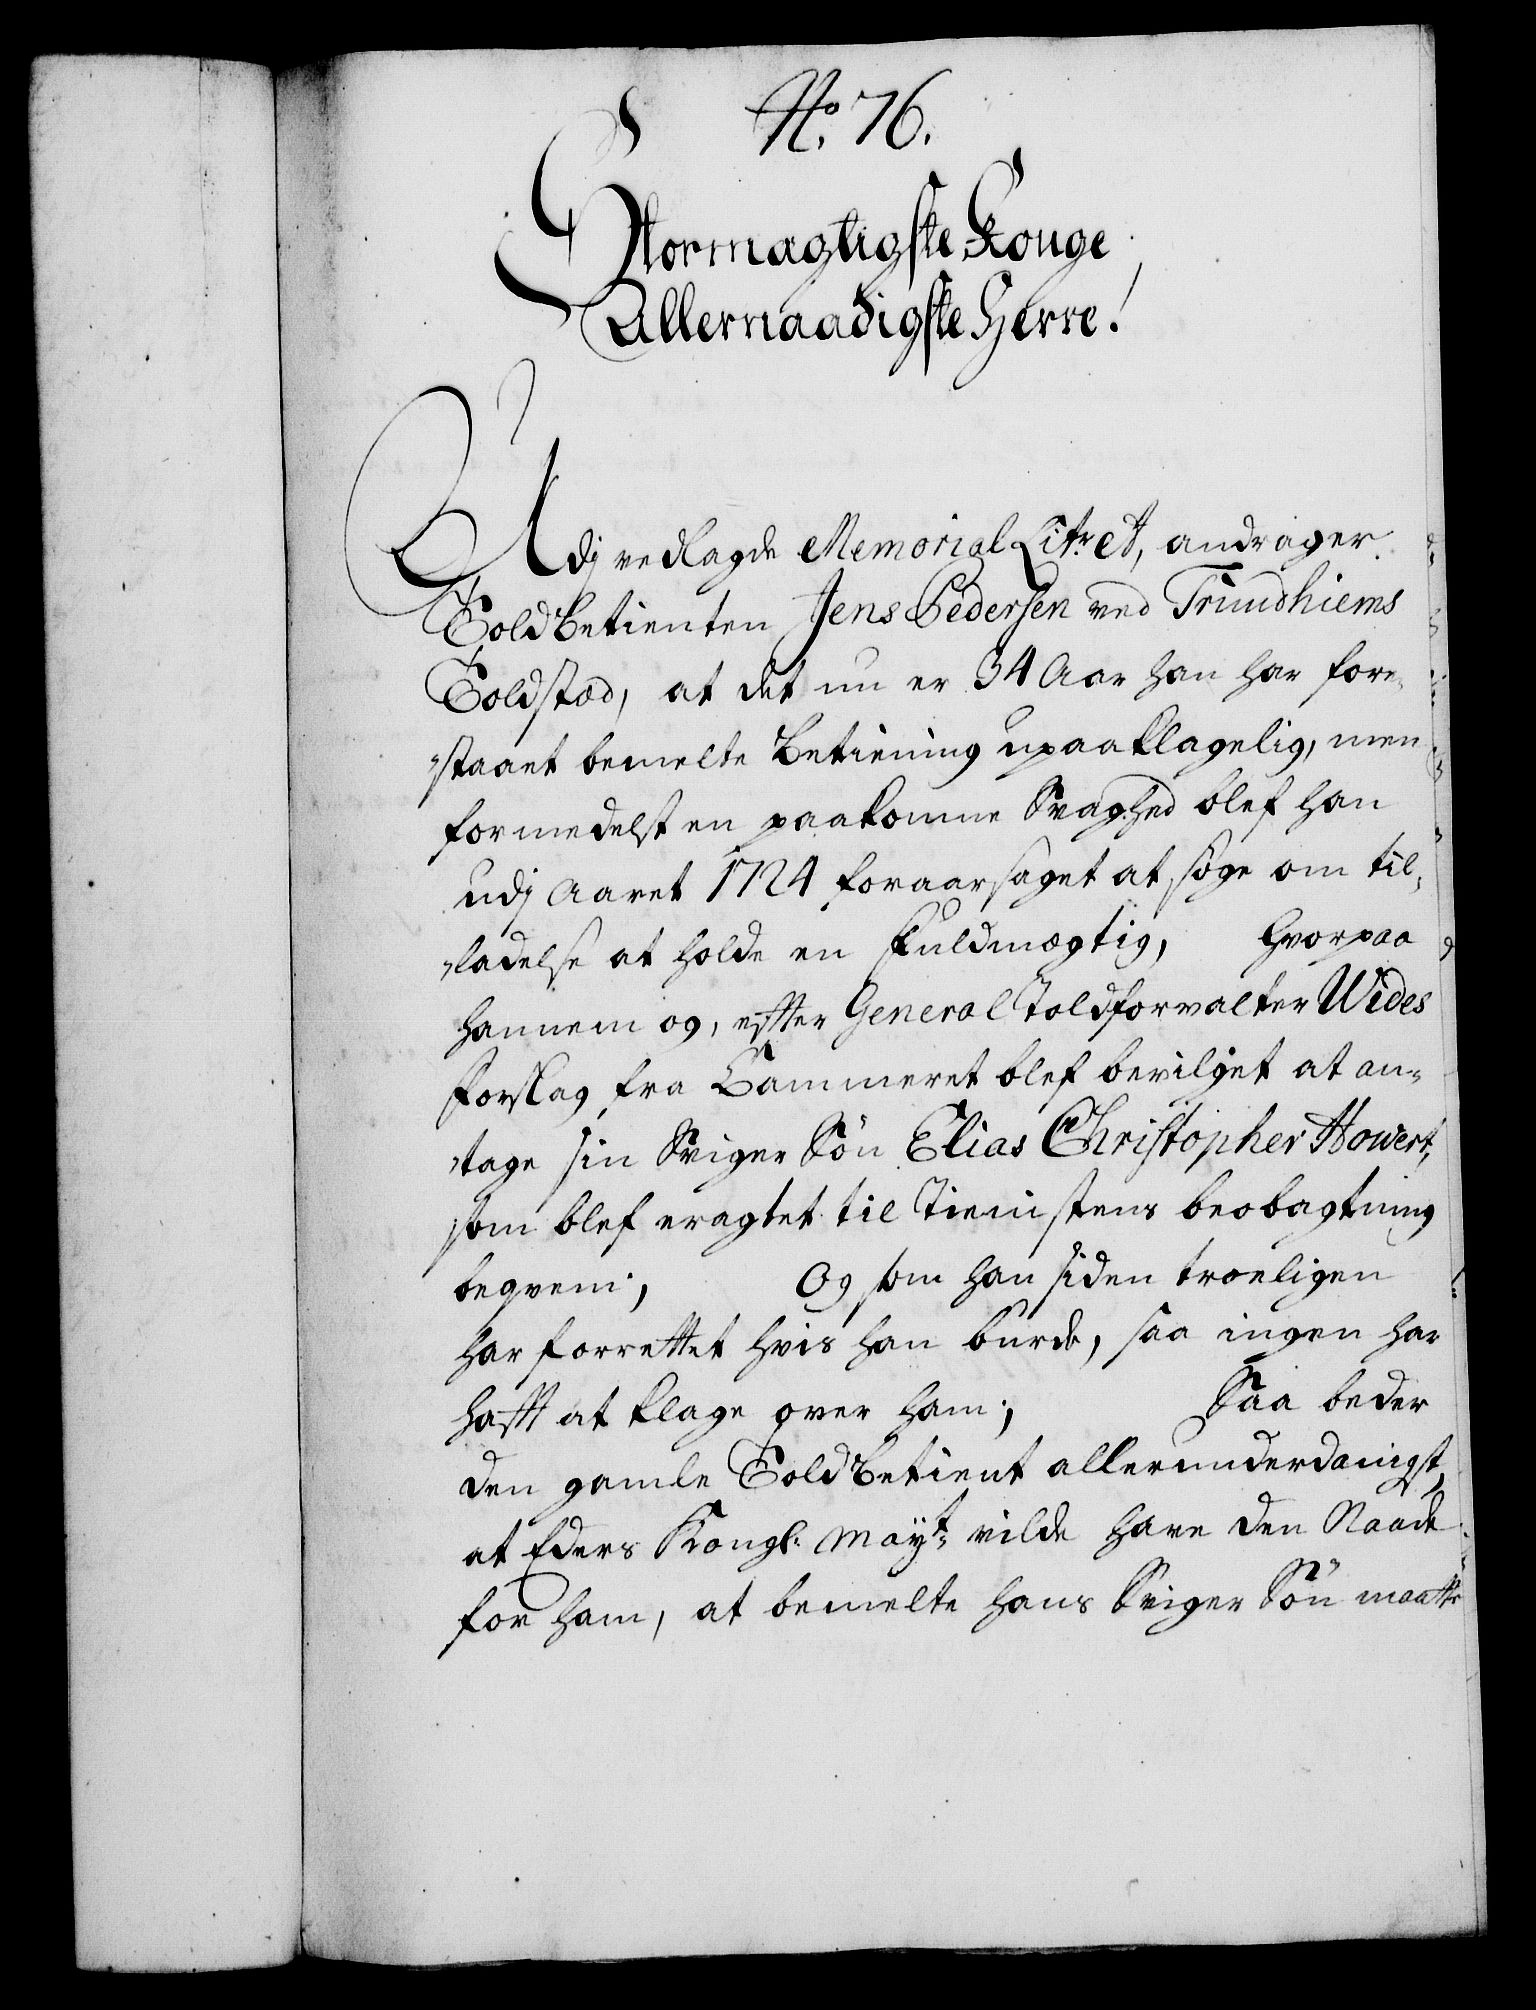 No. 76.
Stormagtigste Konge
Allernaadigste Herre!
Udj vedlagde Memorial Litr A, andrager
Toldbetienten Jens Pedersen ved Trundhiems
Toldstæd, at det nu er 34 Aar han har fore-
staaet bemelte Betiening upaaklagelig, men
formedelst en paakomne Svaghed blef han
udj Aaret 1724 foraarsaget at søge om til-
ladelse at holde en Fuldmægtig, Hvorpaa
hannem og, effter General Toldforvalter Wides
forslag fra Cammeret blef bevilget at an-
tage sin Sviger Søn Elias Christopher Howert,
som blef eragtet til Tienistens beobagtning
beqvem; Og som han siden troeligen
har forrettet hvis han burde, saa ingen har
hafft at klage over ham; Saa beder
den gamle Toldbetient allerunderdanigst,
at Eders Kongl: Mayt: vilde have den Naade
for ham, at bemelte hans Sviger Søn maatte